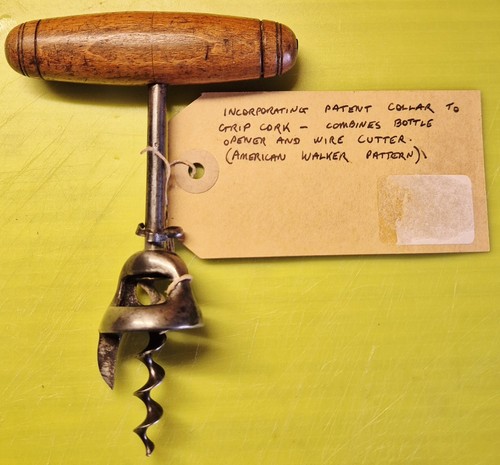 INCORPORATING PATENT COLLAR TO
GRIP CORK – COMBINES BOTTLE
OPENER AND WIRE CUTTER.
(AMERICAN WALKER PATTERN).